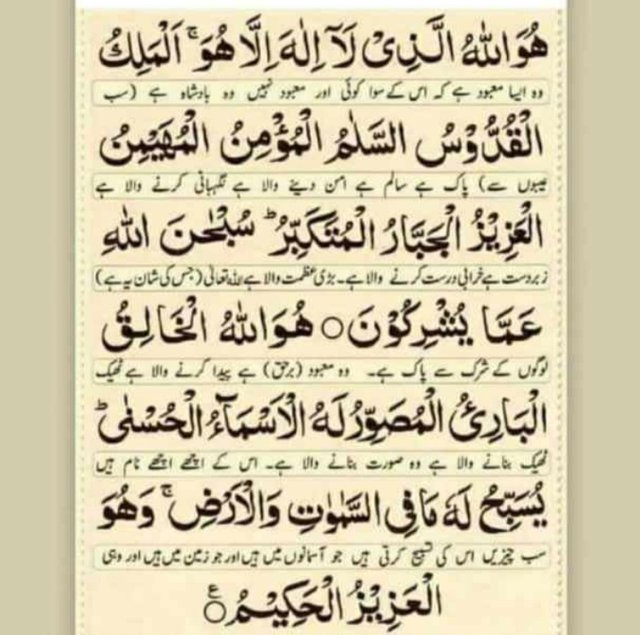 هُوَ اللّٰهُ الَّذِىْ لَاۤ اِلٰهَ اِلَّا هُوَ ۚ اَلْمَلِكُ
وہ ایسا معبود ہے کہ اس کے سوا کوئی اور معبود نہیں وہ بادشاہ ہے (سب
الْقُدُّوْسُ السَّلٰمُ الْمُؤْمِنُ الْمُهَيْمِنُ
عیبوں سے) پاک ہے سالم ہے امن دینے والا ہے نگہبانی کرنے والا ہے
الْعَزِيْزُ الْجَبَّارُ الْمُتَكَبِّرُ ؕ سُبْحٰنَ اللّٰهِ
زبردست ہے خرابی درست کرنے والا ہے۔ بڑی عظمت والا ہے اللہ تعالٰی (جس کی شان یہ ہے)
عَمَّا يُشْرِكُوْنَ ○ هُوَ اللّٰهُ الْخَالِقُ
لوگوں کے شرک سے پاک ہے۔ وہ معبود (برحق) ہے پیدا کرنے والا ہے ٹھیک
الْبَارِئُ الْمُصَوِّرُ لَهُ الْاَسْمَآءُ الْحُسْنٰى ؕ
ٹھیک بنانے والا ہے وہ صورت بنانے والا ہے۔ اس کے اچھے اچھے نام ہیں
يُسَبِّحُ لَهٗ مَا فِى السَّمٰوٰتِ وَالْاَرْضِ ۚ وَهُوَ
سب چیزیں اس کی تسبیح کرتی ہیں جو آسمانوں میں ہیں اور جو زمین میں ہیں اور وہی
الْعَزِيْزُ الْحَكِيْمُ ○ ع